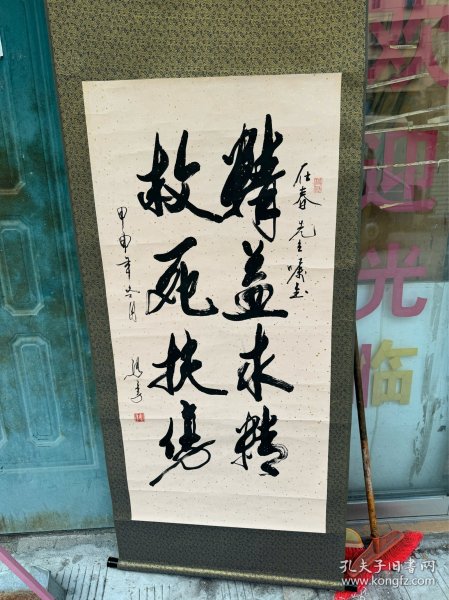 仕春先生嘱书
精益求精
救死扶伤
甲申年六月
欢迎光临
孔夫子旧书网
www.kongfz.com